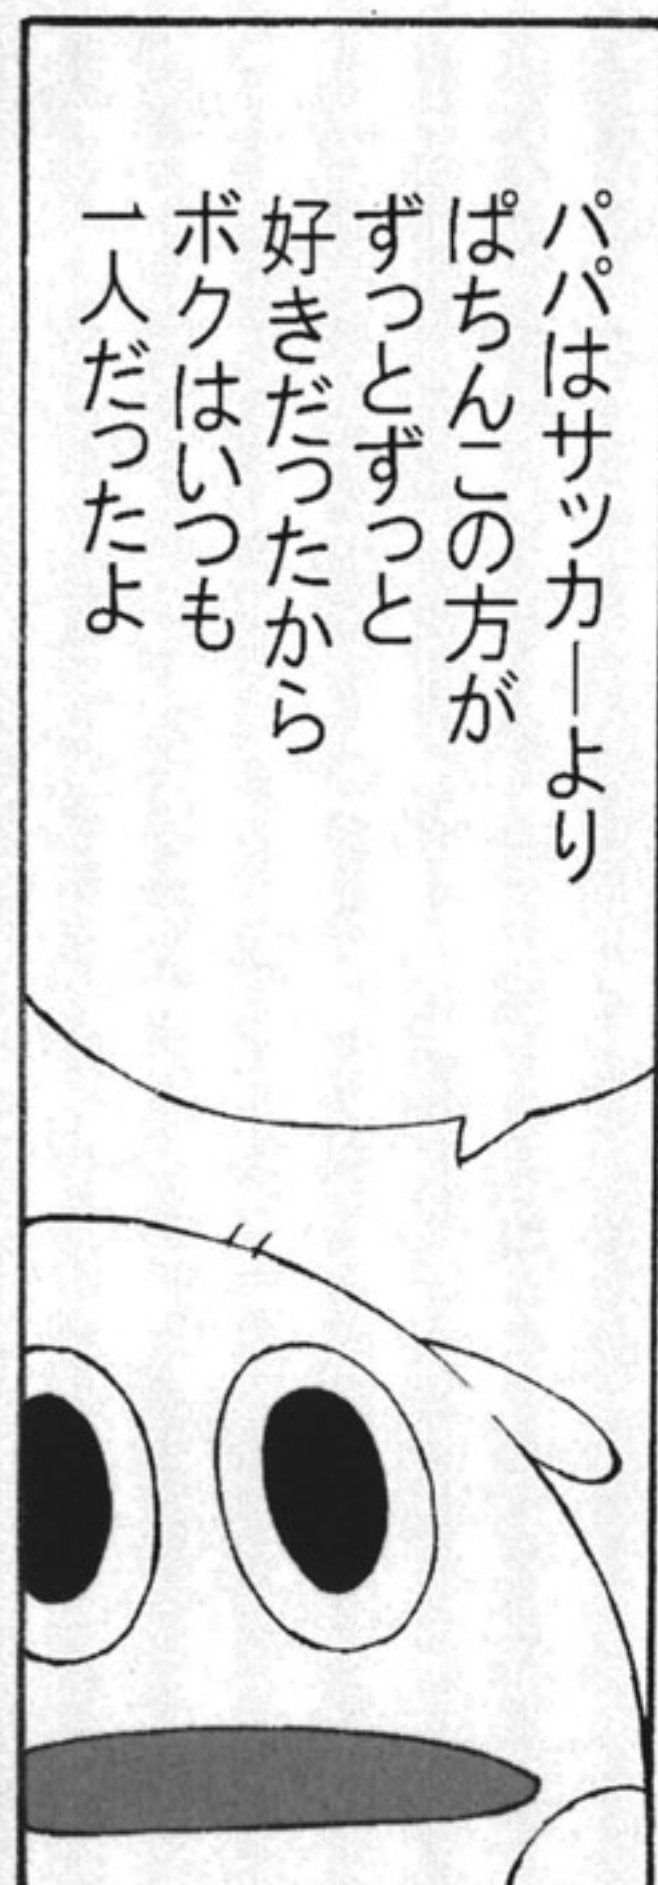 パパはサッカーより
ぱちんこの方が
ずっとずっと
好きだったから
ボクはいつも
一人だったよ